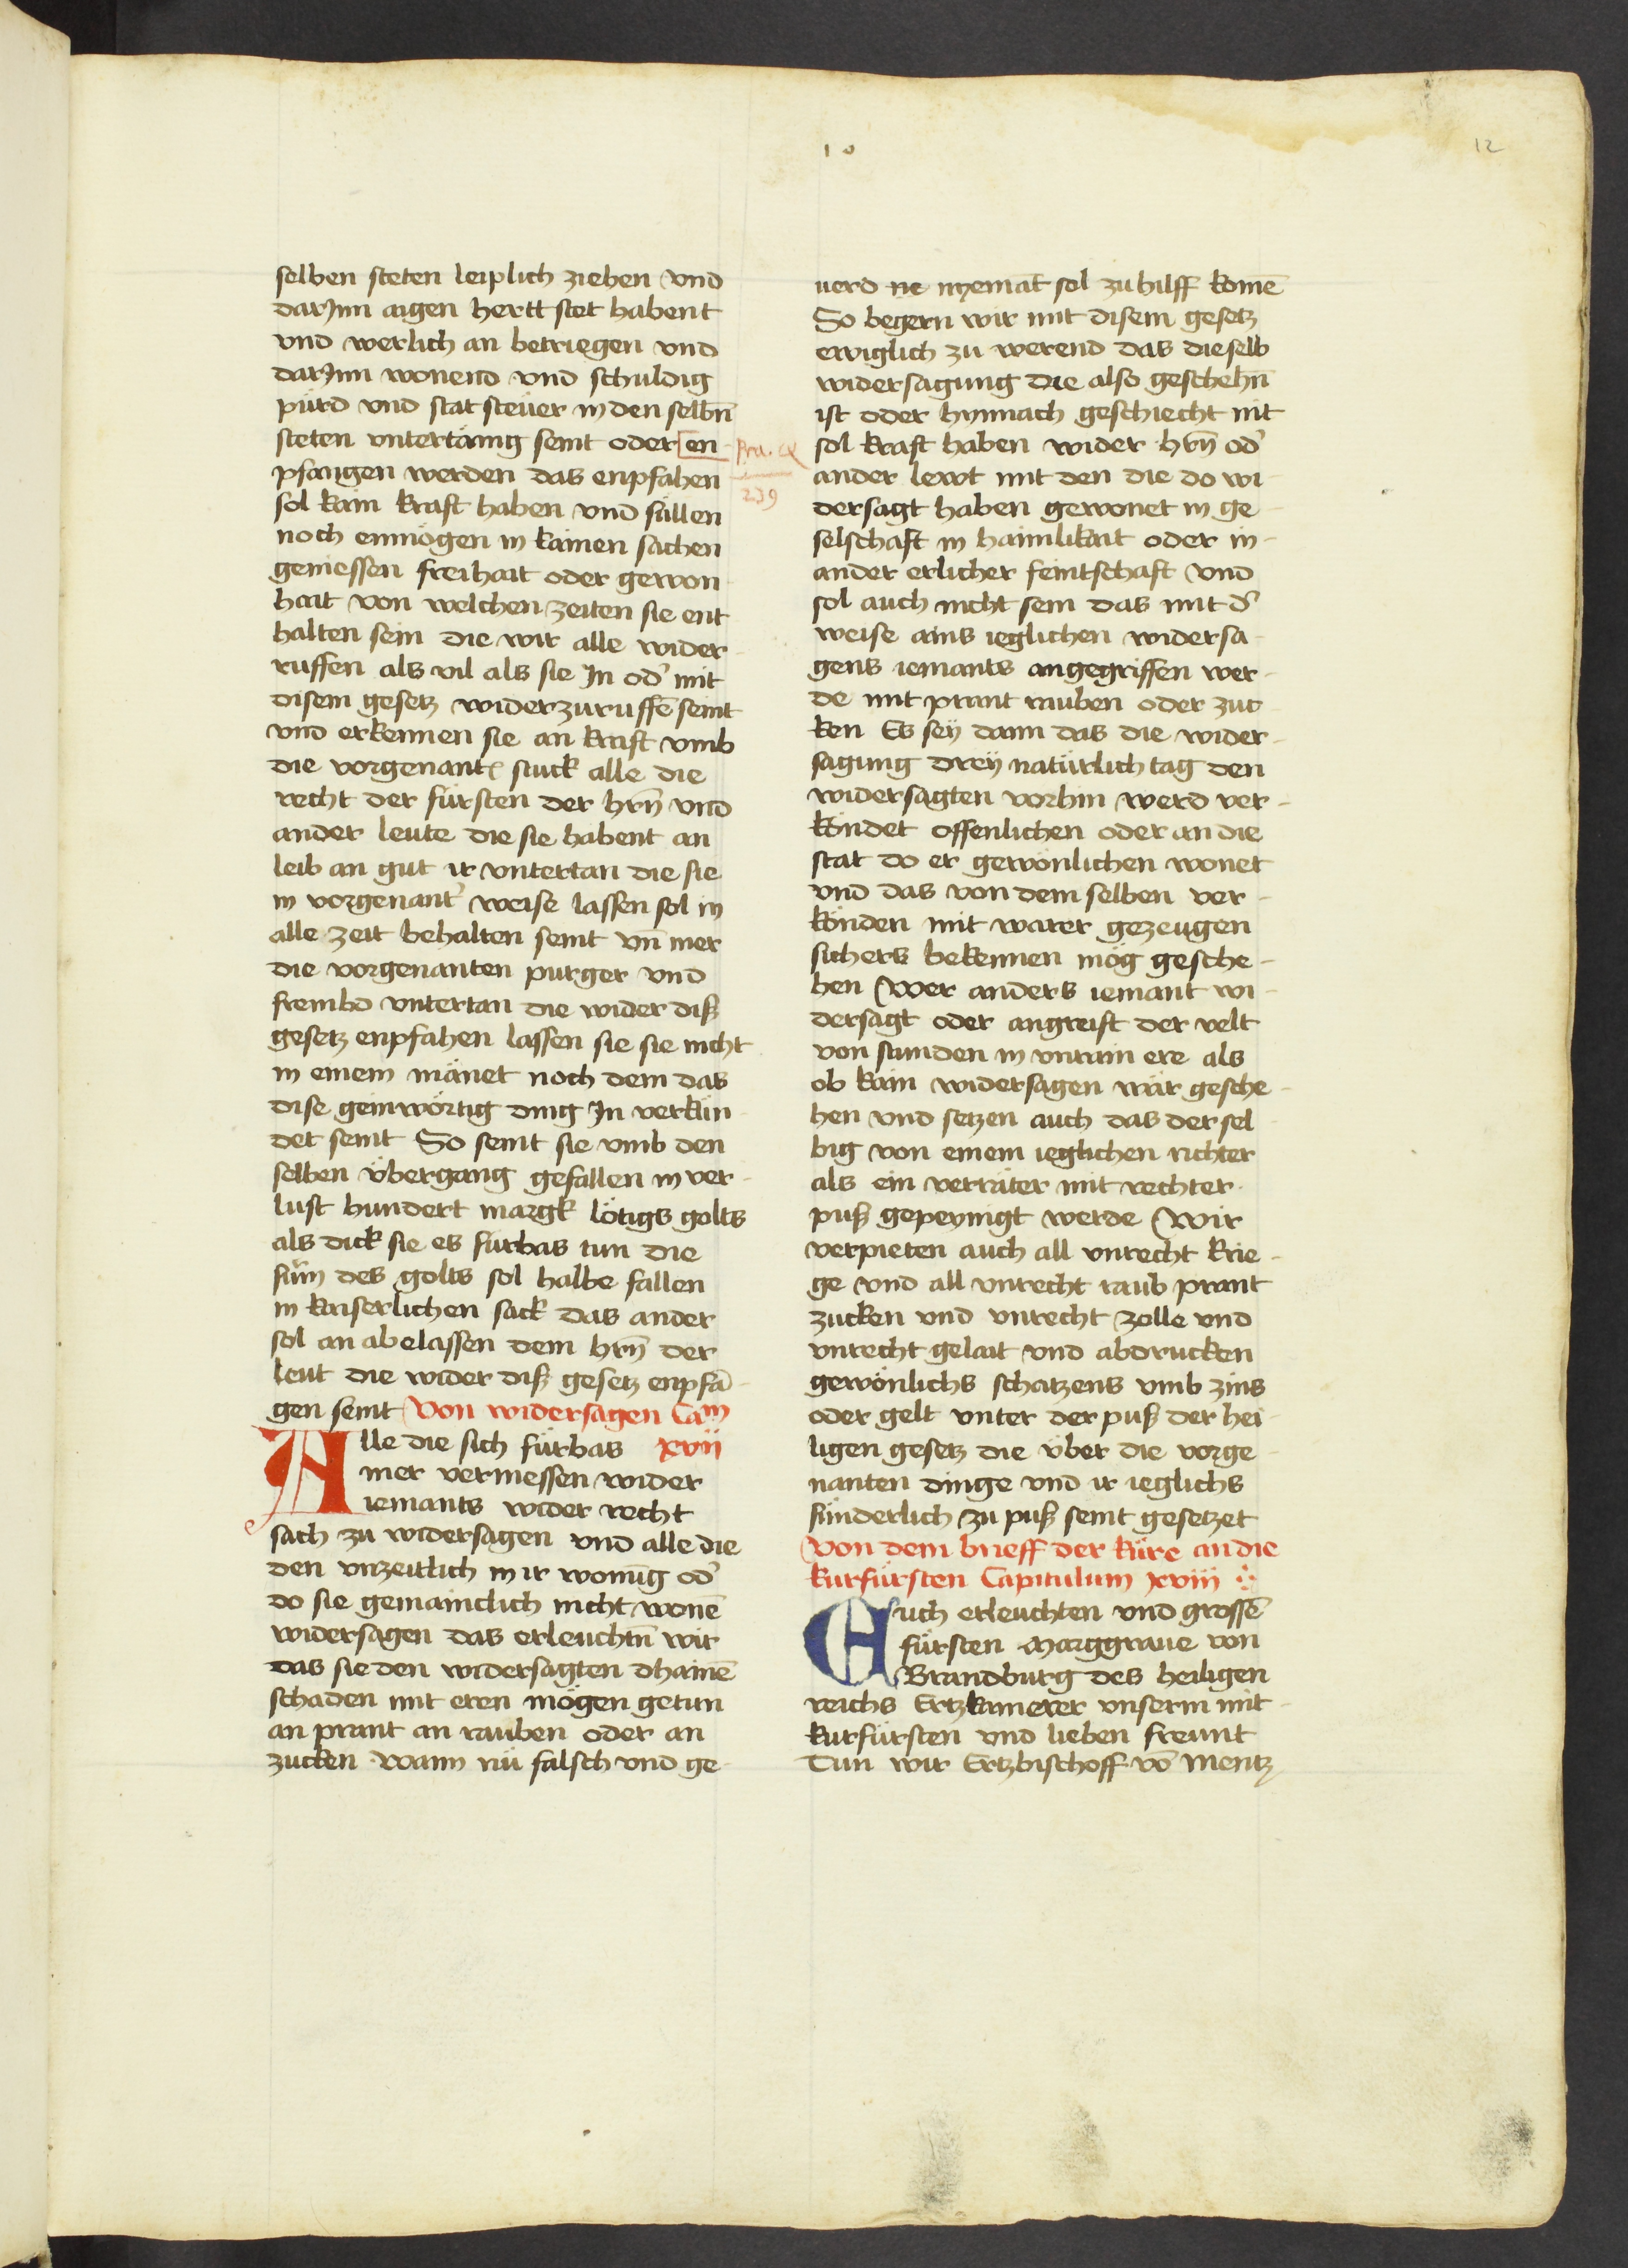 10
12
selben steten leiplich ziehen vnd
darJnn aigen hertt stet habent
vnd werlich an betriegen vnd
darJnn wonend vnd schuldig
pürd vnd stat steüer in den selbn̄
steten vntertänig seint oder en-
pfangen werden das enpfahen
sol kain kraft haben vnd süllen
noch enmögen in kainen sachen
geniessen freihait oder gewon
hait von welchen zeiten sie ent
halten sein die wir alle wider-
ruffen als vil als sie Jn od' mit
disem gesetz widerzuruffē seint
vnd erkennen sie an kraft vmb
die vorgenantē stuck alle die
recht der fürsten der hrn̄ vnd
ander leute die sie habent an
leib an gut ir vntertan die sie
in vorgenant' weise lassen sol in
alle zeit behalten seint vn̄ mer
die vorgenanten purger vnd
frembd vntertan die wider diß
gesetz enpfahen lassen sie sie nicht
in einem mänet noch dem das
dise geinwörtig ding Jn verkün-
det seint So seint sie vmb den
selben übergang gefallen in ver-
lust hundert margk lötigs golts
als dick sie es fürbas tun die
süm des golts sol halbe fallen
in kaiserlichen sack das ander
sol an abelassen dem hrn̄ der
leut die wider diß gesetz enpfā-
gen seint Von widersagen Cam
Alle die sich fürbas xvii
mer vermessen wider
iemants wider recht
sach zu widersagen vnd alle die
den vnzeitlich in ir wonūg od'
do sie gemainclich nicht wonē
widersagen das erleuchtn̄ wir
das sie den widersagten dhainē
schaden mit eren mögen getun
an prant an rauben oder an
zucken Wann nü falsch vnd ge-
Bra. CX
239
uerd ne nyemāt sol zu hilff komē
So begern wir mit disem gesetz
ewiglich zu werend das dieselb
widersagung die also geschehn̄
ist oder hynnach geschiecht nit
sol kraft haben wider hrn̄ od'
ander lewt mit den die do wi-
dersagt haben gewonet in ge-
selschaft in haimlikait oder in-
ander erlicher feintschaft vnd
sol auch nicht sein das mit d'
weise ains ieglichen widersa-
gens iemants angegriffen wer-
de mit prant rauben oder zuc-
ken Es sey dann das die wider-
sagung drey natürlich tag den
widersagten vorhin werd ver-
kündet offenlichen oder an die
stat do er gewönlichen wonet
vnd das von dem selben ver-
künden mit warer gezeugen
sichers bekennen mög gesche-
hen Wer anders iemant wi-
dersagt oder angreift der velt
von stunden in vnrain ere als
ob kain widersagen wär gesche-
hen vnd setzen auch das der sel-
big von einem ieglichen richter
als ein verräter mit rechter
puß gepeynigt werde Wir
verpieten auch all vnrecht krie-
ge vnd all vnrecht raub prant
zucken vnd vnrecht zolle vnd
vnrecht gelait vnd abdrucken
gewönlichs schatzens vmb zins
oder gelt vnter der puß der hei-
ligen gesetz die über die vorge-
nanten dinge vnd ir ieglichs
sünderlich zu puß seint gesetzet
Von dem brieff der küre an die
kurfürsten Capitulum xviii
Euch erleuchten vnd grossē
fürsten Marggraue von
Brandburg des heiligen
reichs Ertzkamerer vnserm mit-
kurfürsten vnd lieben freunt
Tun wir Ertzbischoff vō Mentz